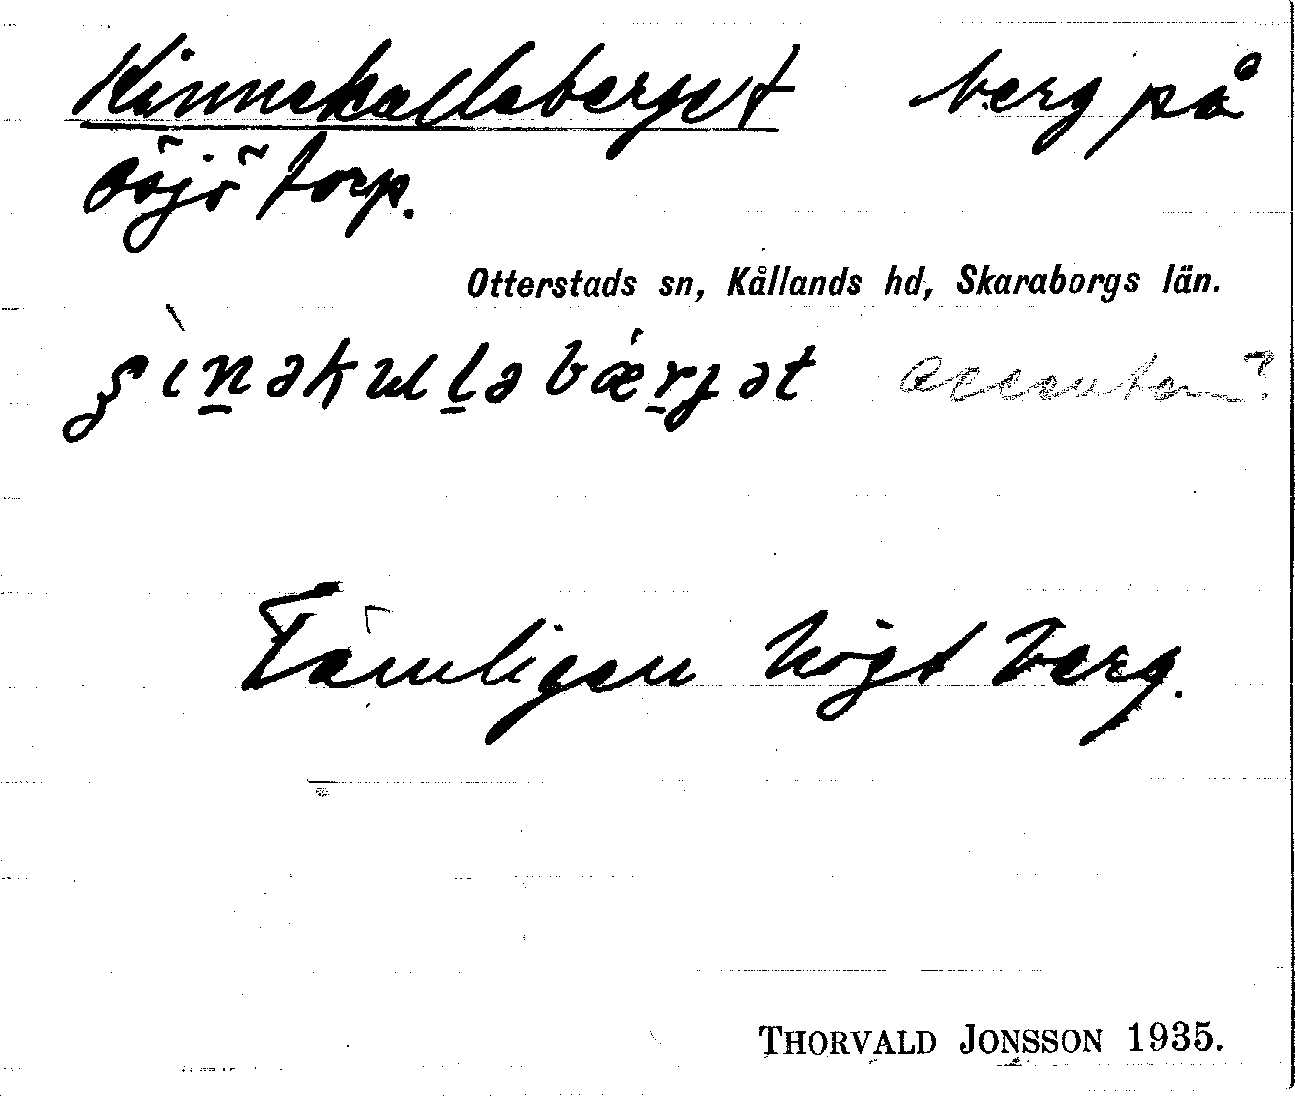 Kinnekulleberget berg på
Ösjötorp.
Otterstads sn, Kållands hd, Skaraborgs län.
accenten?
Tämligen högt berg.
THORVALD JONSSON 1935.